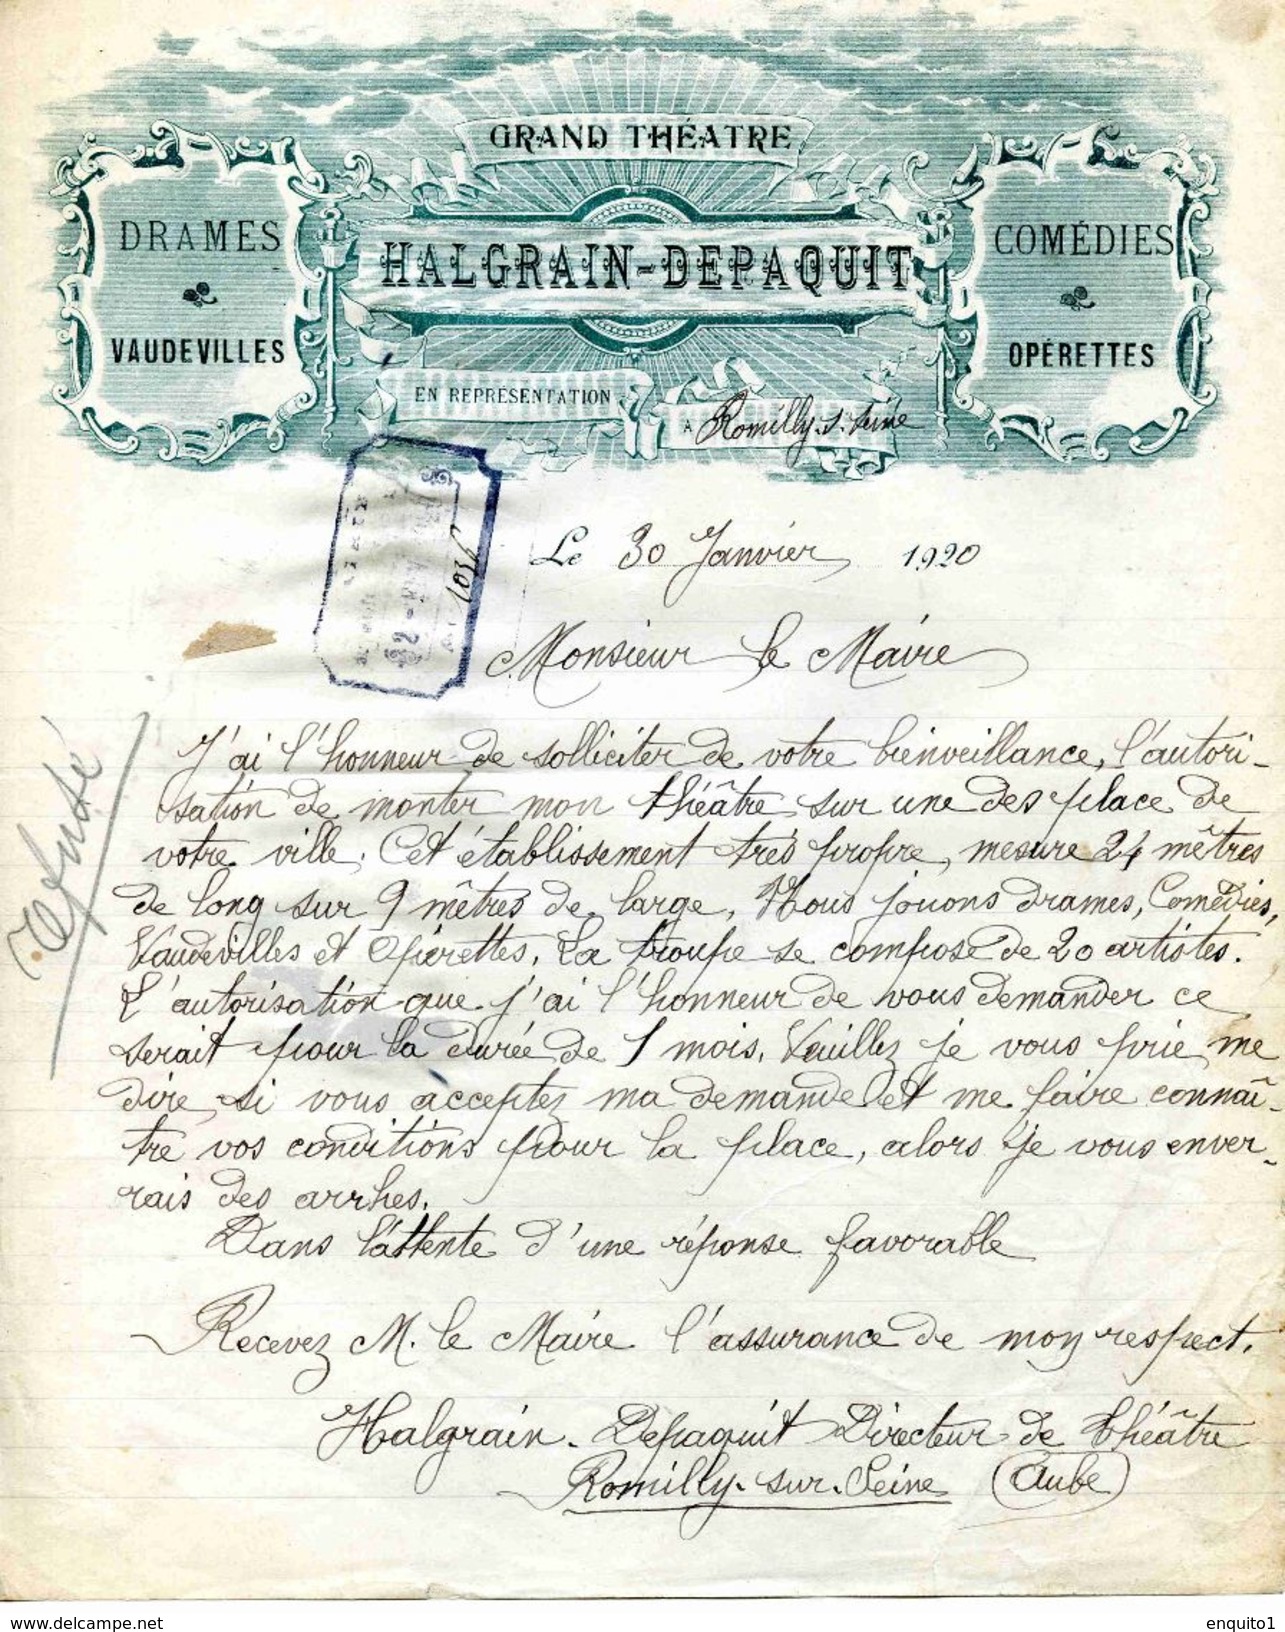 GRAND THÉATRE
DRAMES
VAUDEVILLES
HALGRAIN-DEPAQUIT
COMÉDIES
OPÉRETTES
EN REPRÉSENTATION
A Romilly-s-Seine
1036
Le 30 Janvier 1920
Monsieur le Maire
Refusé
J'ai l'honneur de solliciter de votre bienveillance, l'autori-
sation de monter mon théâtre sur une des place de
votre ville. Cet établissement très propre, mesure 24 mêtres
de long sur 9 mêtres de large. Nous jouons drames, Comédies,
Vaudevilles et Opérettes. La troupe se compose de 20 artistes.
L'autorisation que j'ai l'honneur de vous demander ce
serait pour la durée de 1 mois. Veuillez je vous prie, me
dire, si vous acceptez ma demande et me faire connaî-
tre vos conditions pour la place, alors je vous enver-
rais des arrhes.
Dans l'attente d'une réponse favorable
Recevez M. le Maire l'assurance de mon respect.
Halgrain-Depaquit Directeur de théâtre
Romilly-sur-Seine (Aube)
www.delcampe.net
enquito1